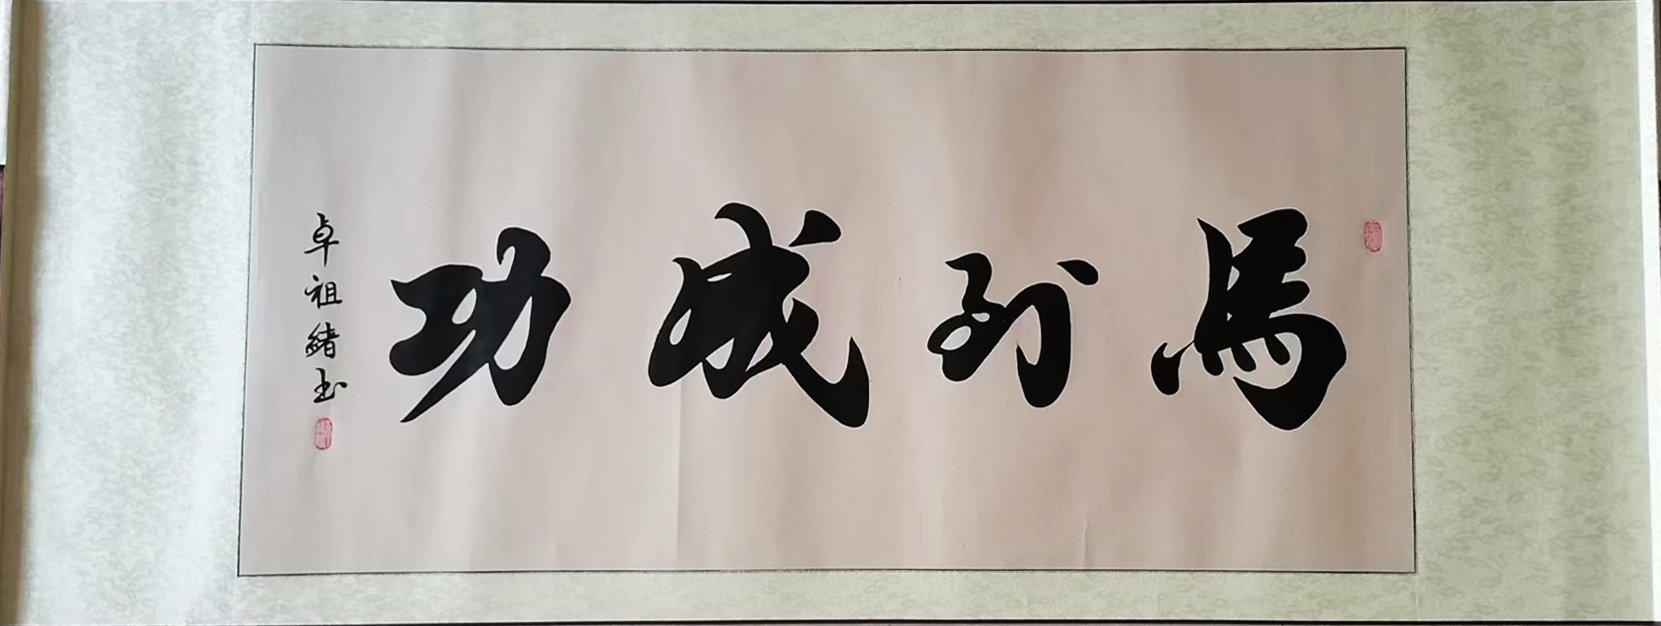 馬到成功
卓祖緒书